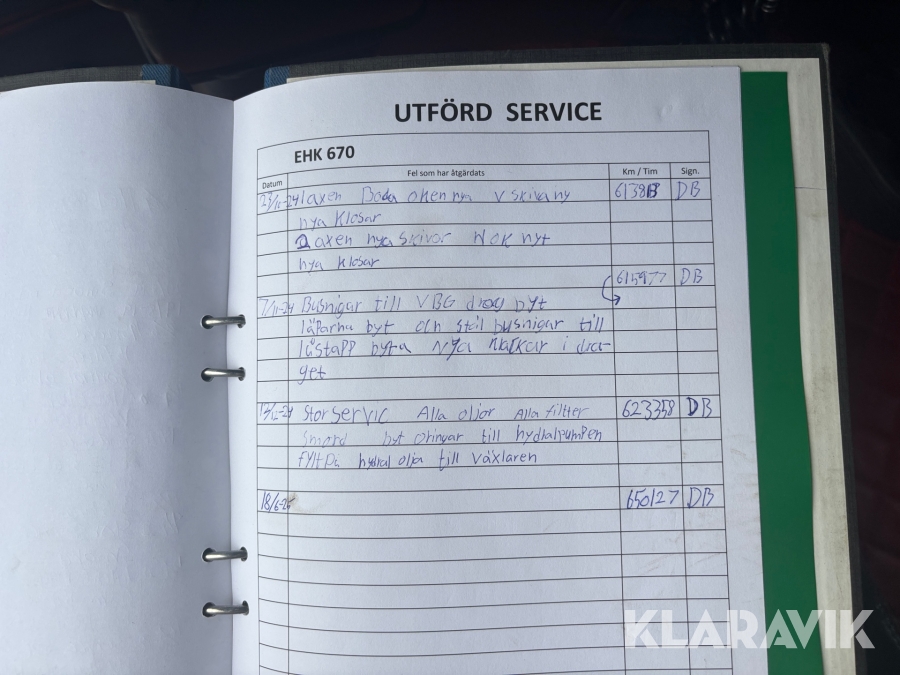 UTFÖRD SERVICE
EHK 670
Datum Fel som har åtgärdats Km / Tim Sign.
1axen Båda oken nya V skiva ny DB
nya Klosar
2axen nya skivor NOK nytt
nya Klosar
615977 DB
7/11-24 Busnigar till VBG drag byt
läparna byt och stål busnigar till
låstapp byta Nya Mackar i dra-
get
12/12-24 Storservic Alla oljor Alla filtter 623358 DB
Smord byt oringar till hydralpumpen
fyllt på hydral olja till växlaren
18/6-25 650127 DB
KLARAVIK